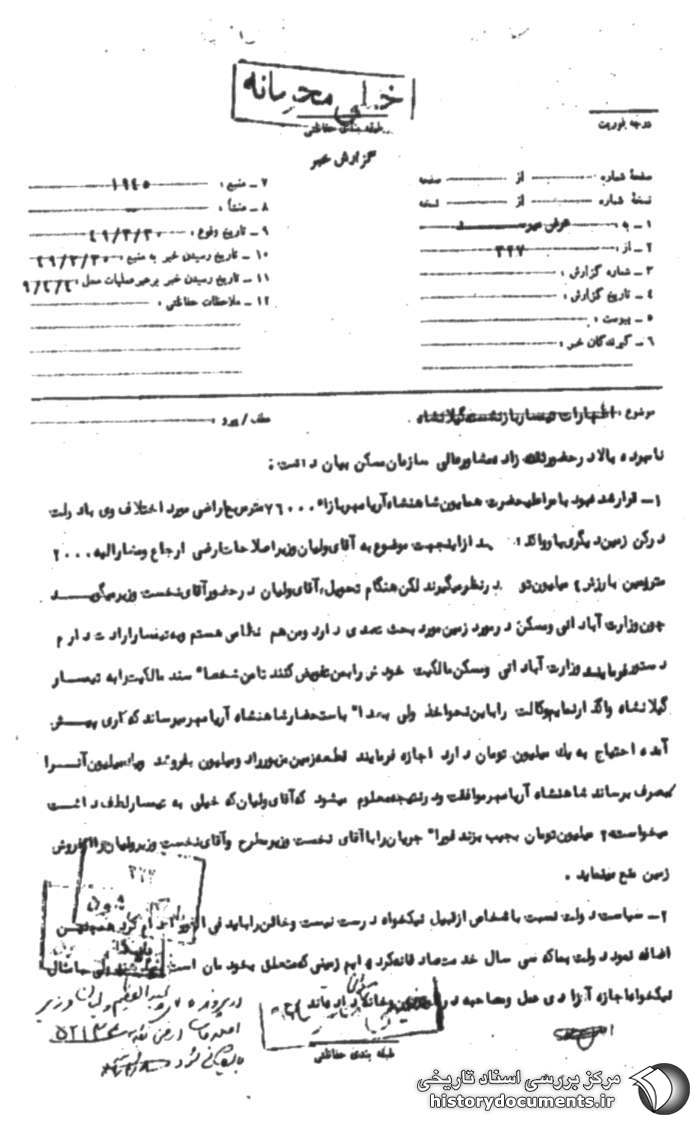 خیلی محرمانه
طبقه بندی حفاظتی
درجه فوریت
گزارش خبر
صفحهٔ شماره : از صفحه
نسخهٔ شماره : از نسخه
۱ ـ به :
۲ ـ از : ۳۲۷
۳ ـ شماره گزارش :
۴ ـ تاریخ گزارش :
۵ ـ پیوست :
۶ ـ گیرندگان خبر :
۷ ـ منبع : ۱۹۴۵
۸ ـ منشأ :
۹ ـ تاریخ وقوع : ۴۹/۳/۳۰
۱۰ ـ تاریخ رسیدن خبر به منبع : ۴۹/۳/۳۰
۱۱ ـ تاریخ رسیدن خبر برهبر عملیات محل :
۱۲ ـ ملاحظات حفاظتی :
موضوع : اظهارات تیمسار بازنشسته گیلانشاه
عطف / پیرو :
نامبرده بالا در حضور زاده مشاور عالی سازمان مسکن بیان داشت :
۱ـ قرار شده بود بامر اعلیحضرت همایون شاهنشاه آریامهر بازا ۷۶۰۰۰ متر مربع اراضی مورد اختلاف وی با دولت
در کن زمین دیگری باو از اینجهت موضوع به آقای ولیان وزیر اصلاحات ارضی ارجاع و مشارالیه ۲۰۰۰
متر زمین با ارزش میلیون در نظر میگیرند لکن هنگام تحویل، آقای ولیان در حضور آقای نخست وزیر میگوید
چون وزارت آبادانی و مسکن در مورد زمین مورد بحث تعهدی دارد و من هم نظامی هستم و به تیمسار ارادت دارم
دستور فرمایند وزارت آبادانی و مسکن مالکیت خودش را بمن تفویض کنند تا من شخصا" سند مالکیت را به تیمسار
گیلانشاه واگذار نمایم وکالت را باین نحو اخذ ولی بعدا" باستحضار شاهنشاه آریامهر میرساند که کاری پیش
آمده احتیاج به یک میلیون تومان دارد اجازه فرمایند قطعه زمین مزبور را دو میلیون بفروشد و یک میلیون آنرا
بمصرف برساند شاهنشاه آریامهر موافقت و در نتیجه معلوم میشود که آقای ولیان که خیلی به تیمسار لطف داشت
میخواسته ۲ میلیون تومان بجیب بزند فورا" جریان را با آقای نخست وزیر مطرح و آقای نخست وزیر ولیان را از فروش
زمین منع مینماید .
۲ـ سیاست دولت نسبت باشخاص از قبیل نیکخواه درست نیست و خائن را باید فی الفور اعدام کرد همچنین
اضافه نمود دولت بماکه سی سال خدمت صادقانه کرده ایم زمینی که متعلق بخودمان است ولی بامثال
نیکخواه اجازه آزادی عمل و مصاحبه و خانه داده اند
طبقه بندی حفاظتی
در پرونده عبدالعظیم ولیان وزیر
اصلاحات ارضی
بایگانی شود
مرکز بررسی اسناد تاریخی
historydocuments.ir